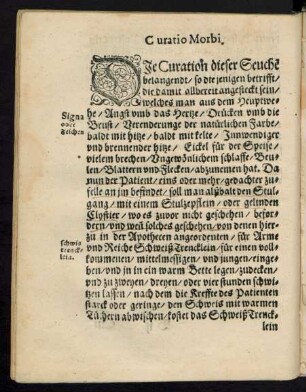 Curatio Morbi.
DIe Curation dieser Seuchē
belangendt / so die jenigen betrifft /
die damit allbereit angesteckt sein /
welches man aus dem Heuptwe-
he / Angst vmb das Hertze / Drücken vmb die
Signa
oder
Zeichen
Brust / Verenderunge der natürlichen Farbe /
baldt mit hitze / baldt mit kelte / Innwendiger
vnd brennender hitze / Eickel für der Speise /
vielem brechen / Vngewönlichem schlaffe / Beu-
len / Blattern vnd Flecken / abzunemen hat. Da
nun der Patient / eins oder mehr / gedachter zu-
felle an jm befindet / soll man alßbalt den Stul-
gang / mit einem Stulzepflein / oder gelinden
Clystier / wo es zuvor nicht geschehen / befor-
dern / vnd weñ solches geschehen / von denen hier-
zu in der Apotecken angeordenten / für Arme
Schwis
trenck-
lein.
vnd Reiche Schweiß Trencklein / für einen voll-
kommenen / mittelmessigen / vnd jungen / einge-
ben / vnd in ein warm Bette legen / zudecken /
vnd zu zweyen / dreyen / oder vier stunden schwi-
tzen lassen / nach dem die Kreffte des Patienten
starck oder geringe / den Schweis mit warmen
Tüchern abwischen / kostet das Schweiß Trenck
lein